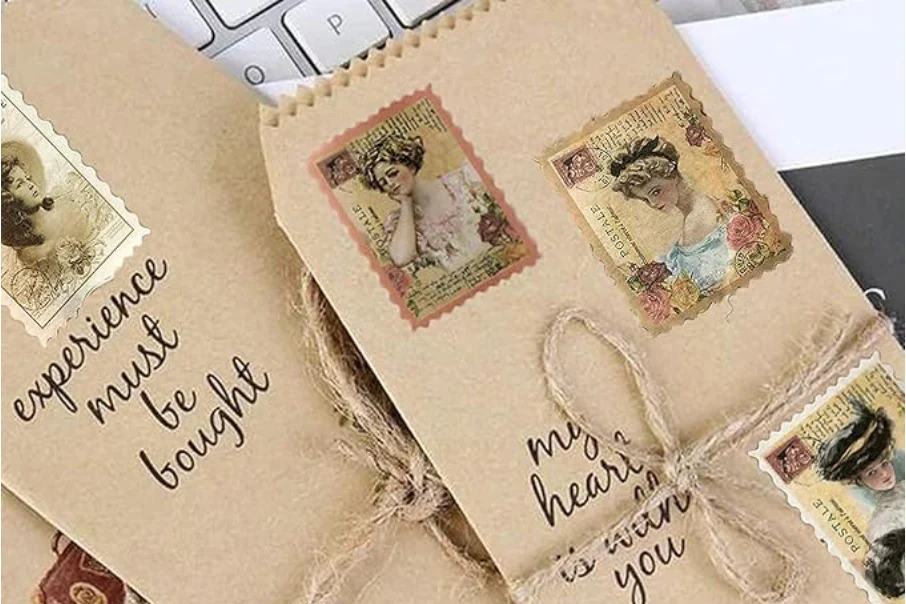 P
O
experience
must
be
bought
POSTALE
POSTALE
my
heart
is with
you
POSTALE